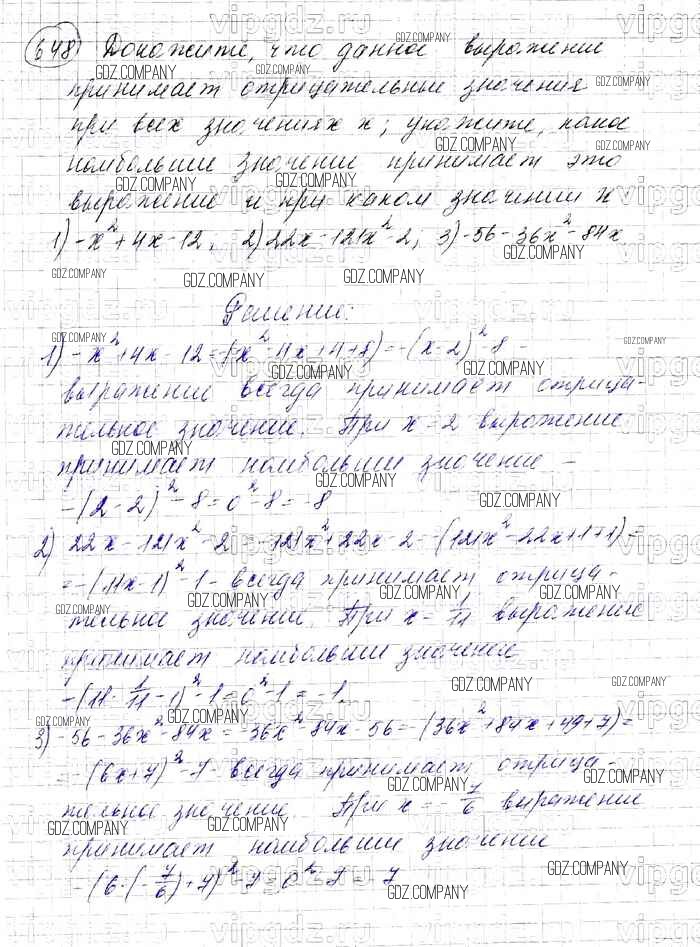 648) Докажите, что данное выражение
принимает отрицательные значения
при всех значениях x; укажите, какое
наибольшее значение принимает это
выражение и при каком значении x
1) -x²+4x-12; 2) 22x-121x²-2; 3) -56-36x²-84x
Решение:
1) -x²+4x-12=-(x²-4x+4+8)=-(x-2)²-8 -
выражение всегда принимает отрица-
тельное значение. При x=2 выражение
принимает наибольшее значение -
-(2-2)²-8=0²-8=-8
2) 22x-121x²-2=-121x²+22x-2=-(121x²-22x+1+1)=
=-(11x-1)²-1 - всегда принимает отрица-
тельное значение. При x=1/11 выражение
принимает наибольшее значение
-(11·1/11-1)²-1=0²-1=-1.
3) -56-36x²-84x=-36x²-84x-56=-(36x²+84x+49+7)=
=-(6x+7)²-7 - всегда принимает отрица-
тельное значение. При x=-7/6 выражение
принимает наибольшее значение
-(6·(-7/6)+7)²-7=0²-7=-7
GDZ.COMPANY
vipgdz.ru